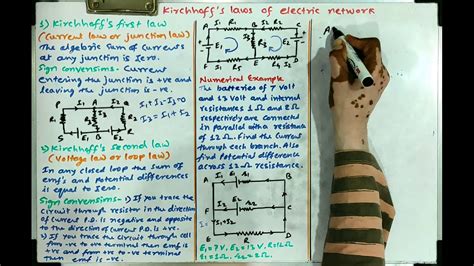 Kirchhoff's laws of electric network
1) Kirchhoff's first law
(Current law or junction law)
The algebric Sum of Currents
at any junction is Zero.
Sign convensions- Current
Entering the junction is +ve and
leaving the junction is -ve.
P I1 A I2 Q
I3
R1 R3 R2
S E1 B E2 R
I1+I2-I3=0
I3 = I1+I2
2) Kirchhoff's second law
(Voltage law or loop law)
In any closed loop the sum of
emf's and potential differences
is equal to zero.
Sign convensions- i) If you trace the
circuit through resistor in the direction
of current P.D. is negative and opposite
to the direction of current P.D. is +ve.
ii) If you trace the circuit through cell
from -ve to +ve terminal then emf is
+ve and from +ve to -ve terminal
then emf is -ve.
Numerical Example
The batteries of 7 volt
and 13 volt and internal
resistances 1Ω and 2Ω
respectively are connected
in parallel with a resistance
of 12Ω. Find the current
through each branch. Also
find potential difference
across 12Ω resistance.
A B
I1 E1 r1
F C
I2 E2 r2
I1+I2
E D
R
E1=7V, E2=13V, R=12Ω
r1=1Ω, r2=2Ω
A